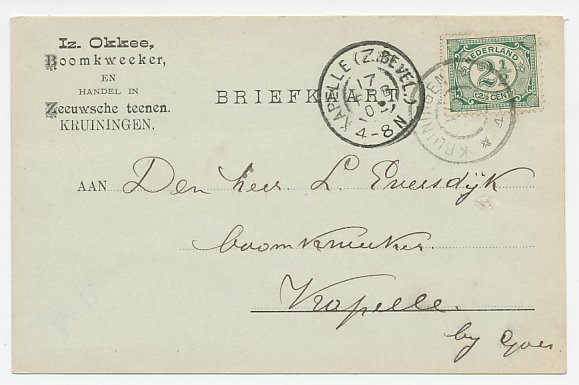 Iz. Okkee,
Boomkweeker,
EN
HANDEL IN
Zeeuwsche teenen.
KRUININGEN.
BRIEFKAART
KAPELLE (Z.BEVEL.)
17
4-8N
KRUININGEN
NEDERLAND
2½
CENT
AAN Den heer L. Eversdijk
boomkweeker
Kapelle.
by Goes